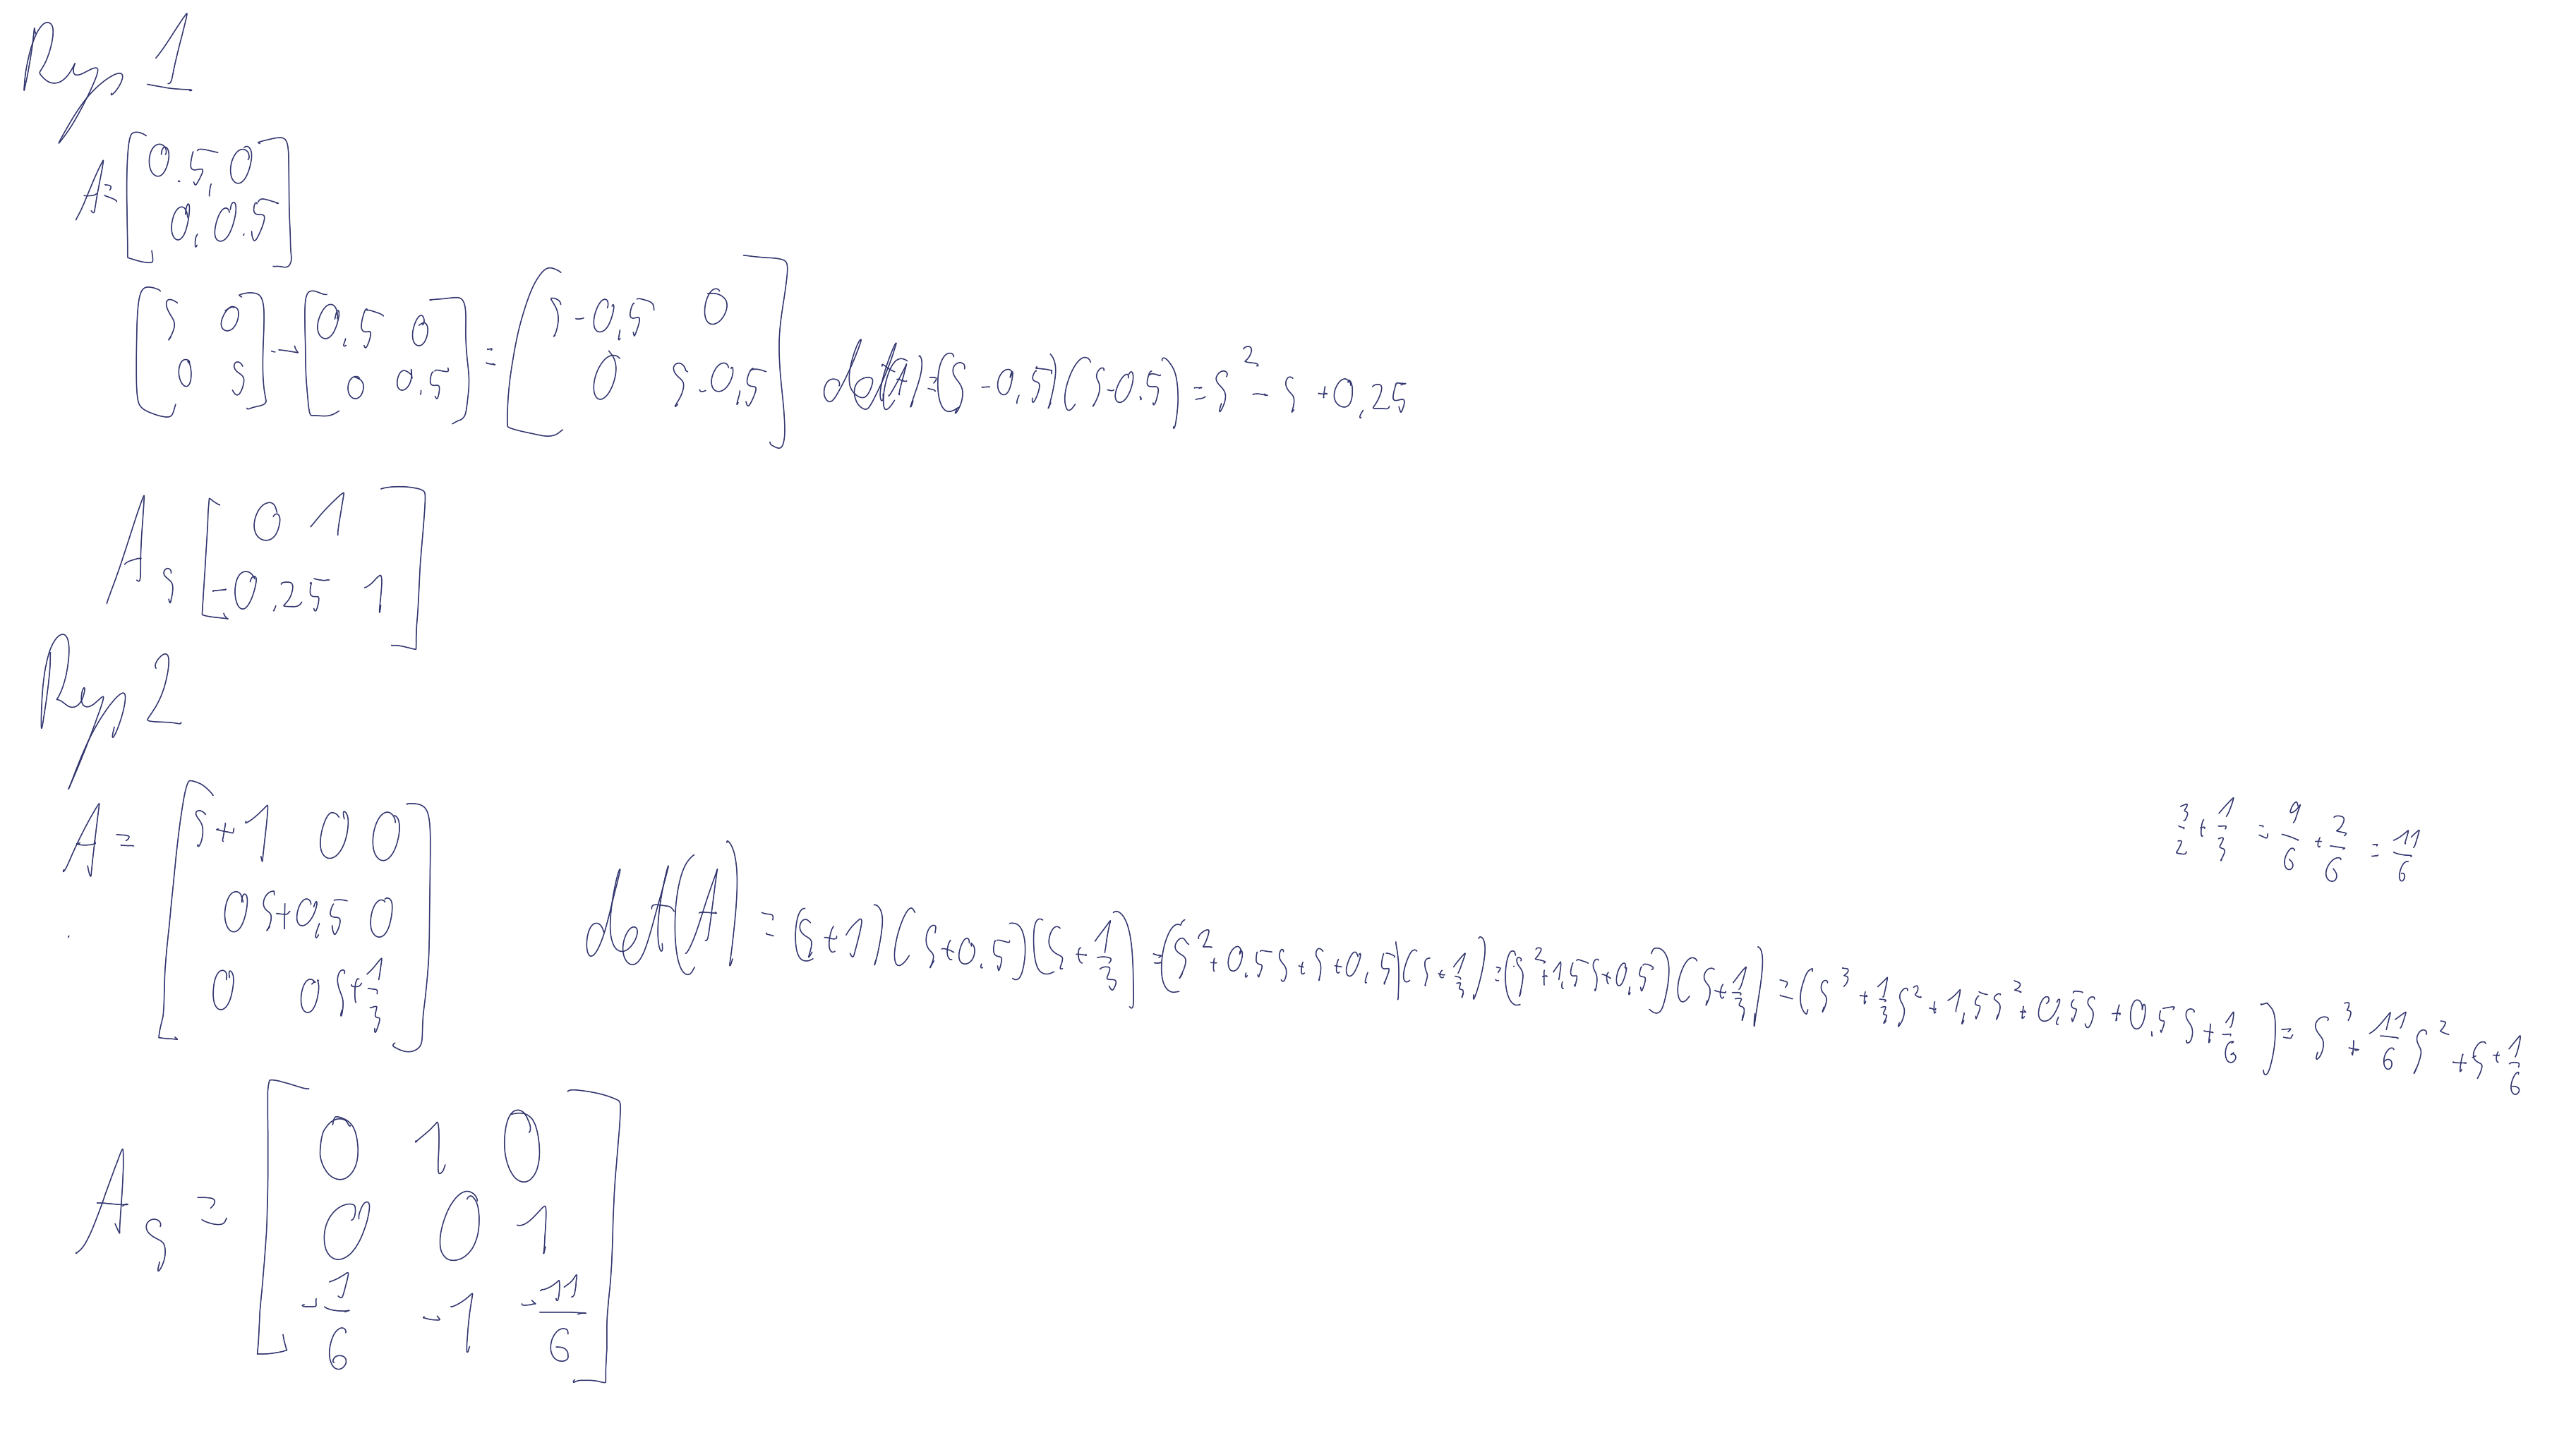 Rys 1
A = [0.5, 0
0, 0.5]
[s 0
0 s] - [0,5 0
0 0.5] = [s-0,5 0
0 s-0,5] det(A) = (s-0,5)(s-0.5) = s² - s + 0,25
A_s [0 1
-0,25 1]
Rys 2
A = [s+1 0 0
0 s+0,5 0
0 0 s+1/3]
3/2 + 1/3 = 9/6 + 2/6 = 11/6
det(A) = (s+1)(s+0.5)(s+1/3) = (s²+0,5s+s+0,5)(s+1/3) = (s²+1,5s+0,5)(s+1/3) = (s³+1/3s²+1,5s²+0,5s+0,5s+1/6) = s³+11/6s²+s+1/6
A_s = [0 1 0
0 0 1
-1/6 -1 -11/6]